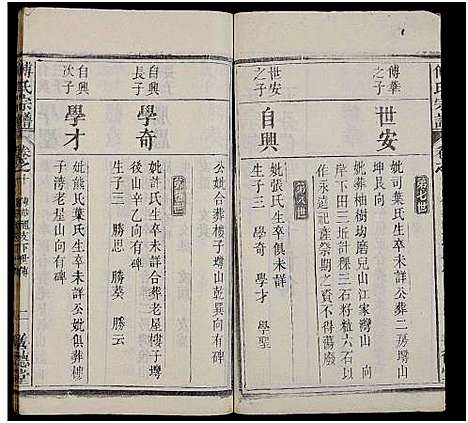 傅氏宗譜
傅華之子
世安
第七世
妣司葉氏生卒未詳公葬二房塆山
坤艮向
妣葬柚樹坊磨兒山江家灣山 向
岸下田三坵計積三石籽粒六石以
作永遠記產祭期之資不得蕩廢
世安之子
自興
第八世
妣張氏生卒俱未詳
生子三 學奇 學才 學聖
公妣合葬樓子塆山乾巽向有碑
第九世
自興長子
學奇
妣許氏生卒未詳合葬老屋樓子塆
後山辛乙向有碑
生子二 勝葵 勝云
自興次子
學才
妣熊氏葉氏生卒未詳公妣俱葬樓
子灣老屋山向有碑
傅氏宗譜